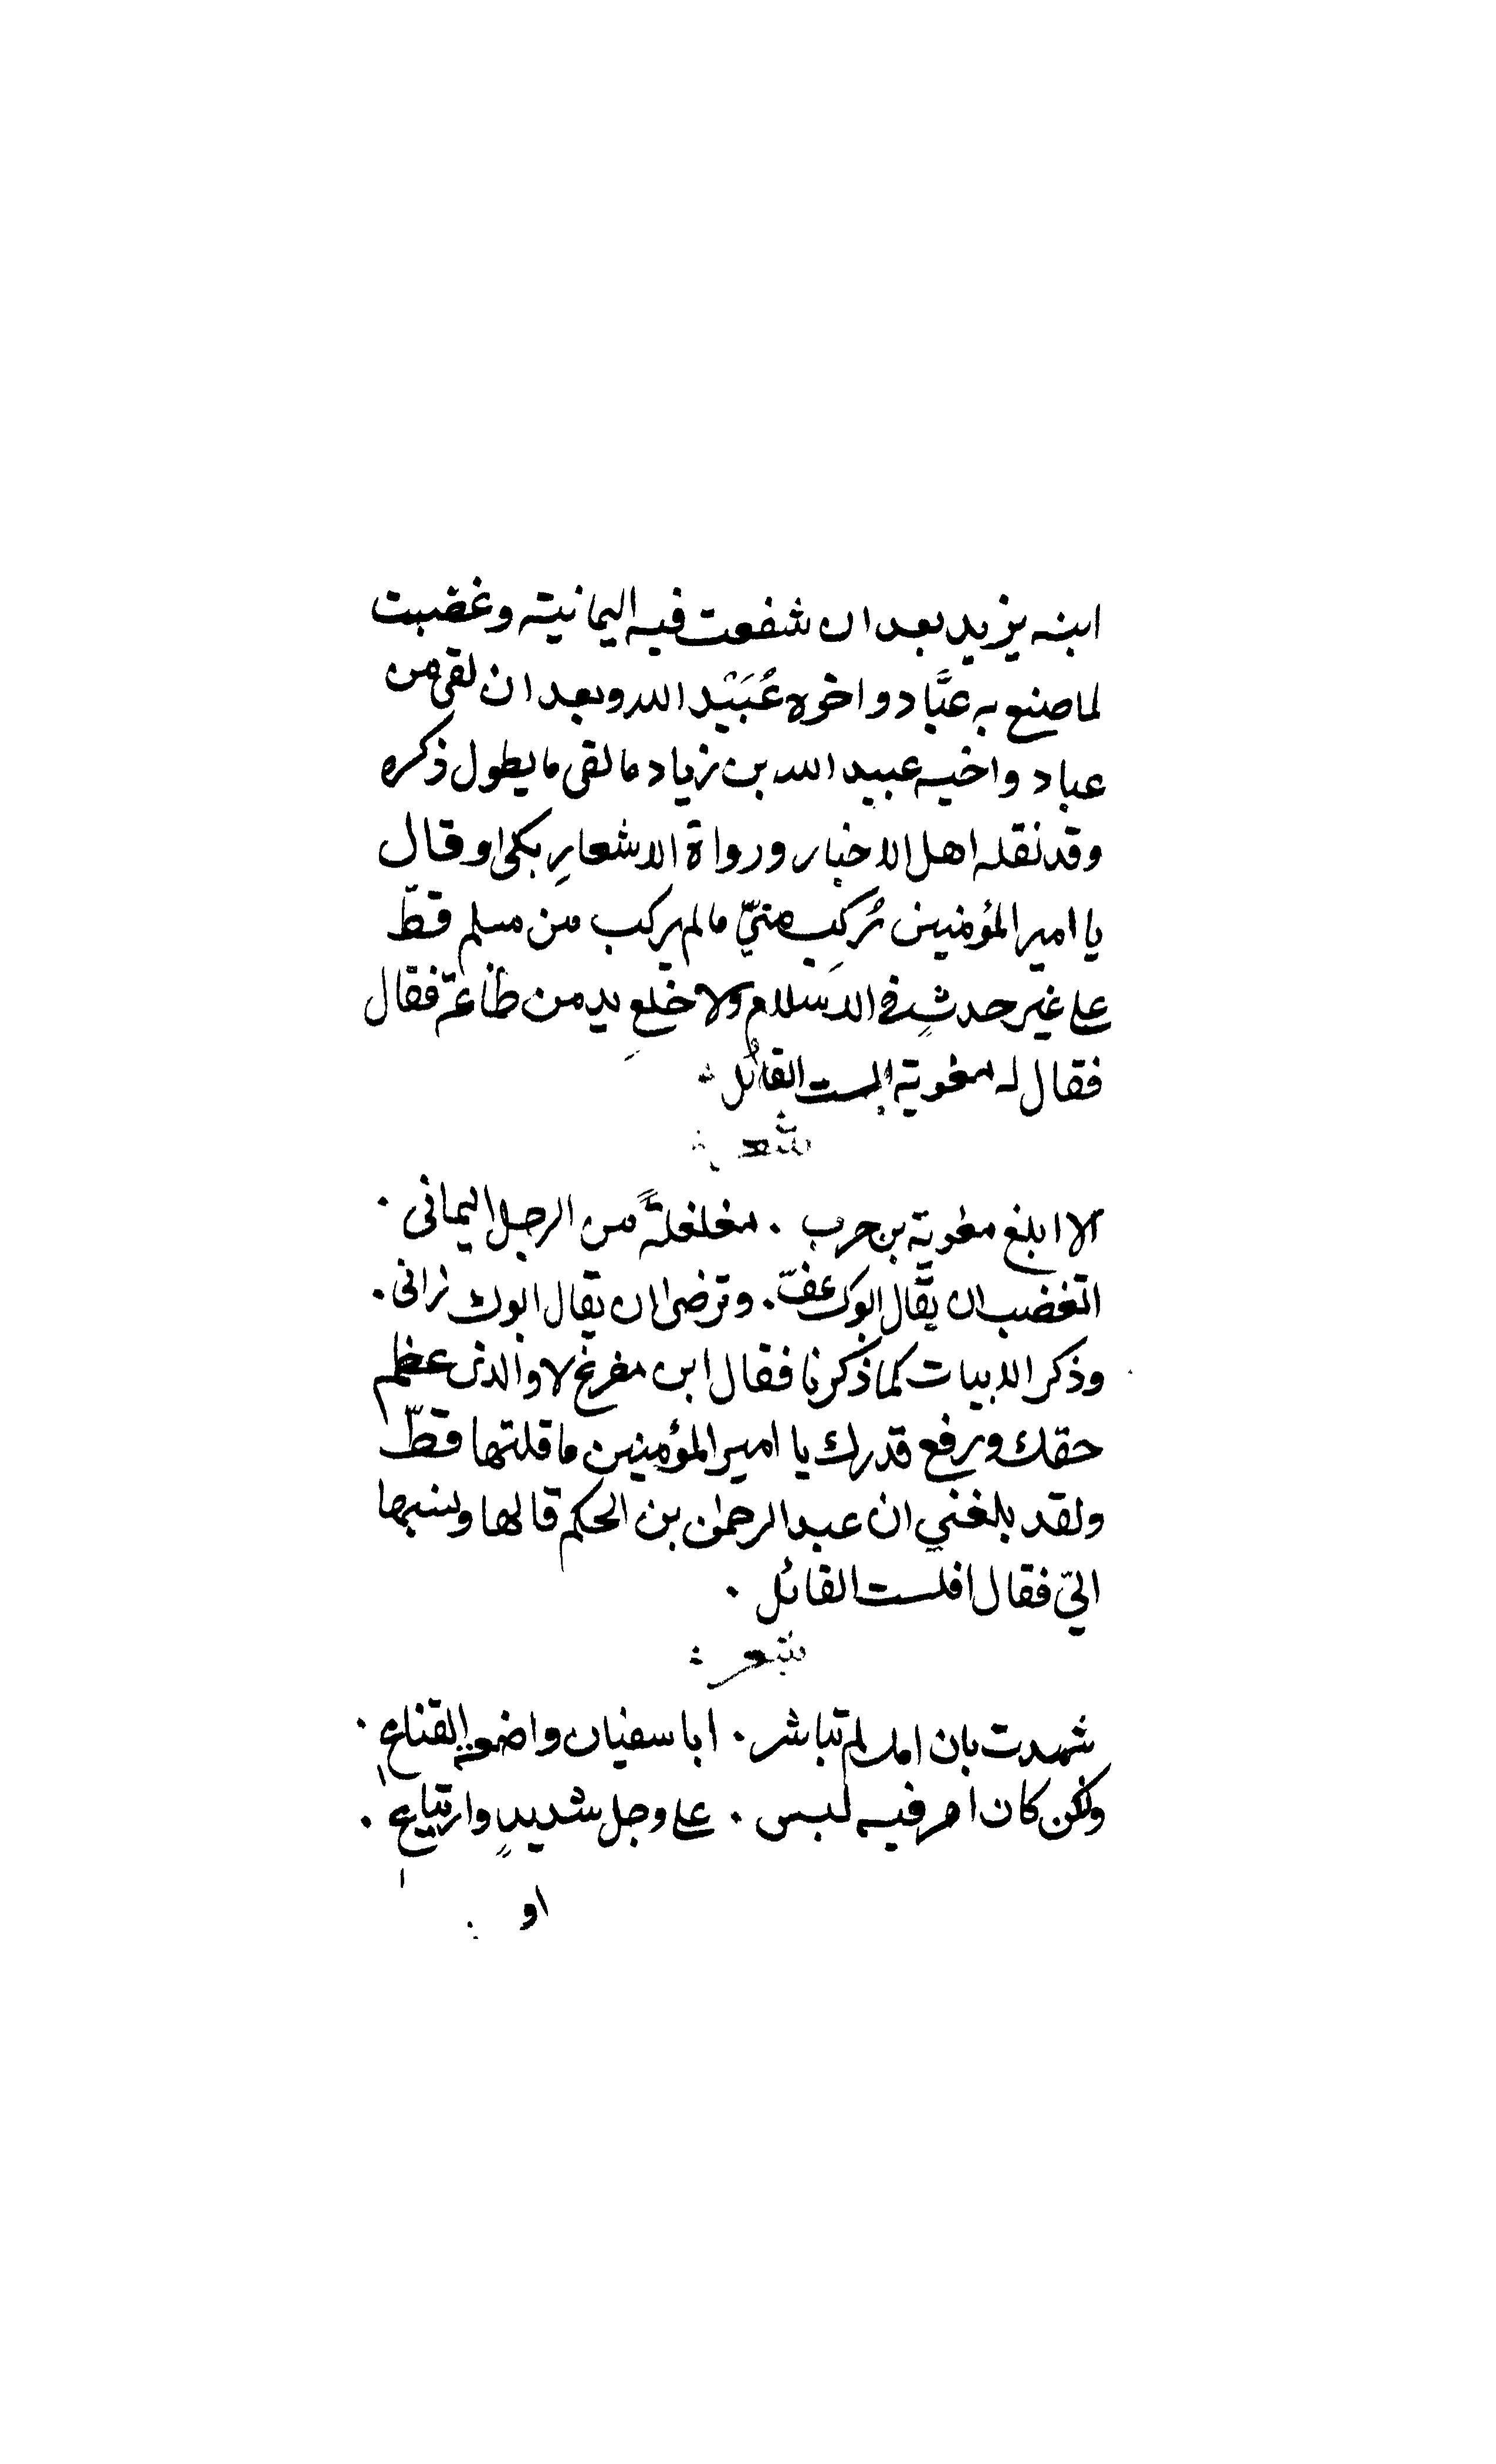 ابنه يزيد بعد ان شفعت فيه اليمانية وغضبت
لما صنع به عبَّاد واخوه عُبَيْد الله وبعد ان لقى من
عباد واخيه عبيد الله بن زياد ما لقى ما يطول ذكره
وقد نقله اهل الاخبار ورواة الاشعارِ بكى وقال
يا امير المؤمنين رُكِب منيّ ما لم يركب من مسلم قطّ
على غير حدثٍ فى الاسلام ولا خلعِ يد من طاعة فقال
فقال له معوية الست القائل
شعر
الا ابلغ معوية بن حرب . مغلغلةً من الرجل اليمانى .
اتغضب ان يقال ابوك عفّ . وترضى ان يقال ابوك زانى .
وذكر الابيات كما ذكرنا فقال ابن مفرغ لا والذى عظم
حقك ورفع قدرك يا امير المؤمنين ما قلتها قطّ
ولقد بلغني ان عبد الرحمن بن الحكم قالها ونسبها
اليّ فقال افلست القائل .
شعر
شهدت بان امك لم تباشر . ابا سفيان واضعة القناع .
ولكن كان امر فيه لبس . على وجل شديدٍ وارتياع .
او